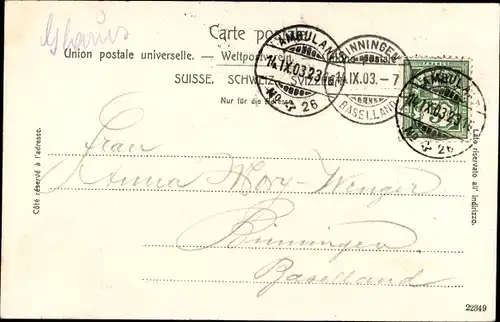 Glarus
Carte postale.
Union postale universelle. — Weltpostverein. — Unione postale
SUISSE. SCHWEIZ. SVIZZERA.
Nur für die Adresse.
AMBULANT
14.IX.03.23
No. 26
BINNINGEN
14.IX.03.–7
BASELLAND
AMBULANT
14.IX.03.23
No. 26
Côté réservé à l'adresse.
Lato riservato all' indirizzo.
Frau
Anna Mory-Wenger
Binningen
Baselland
22349